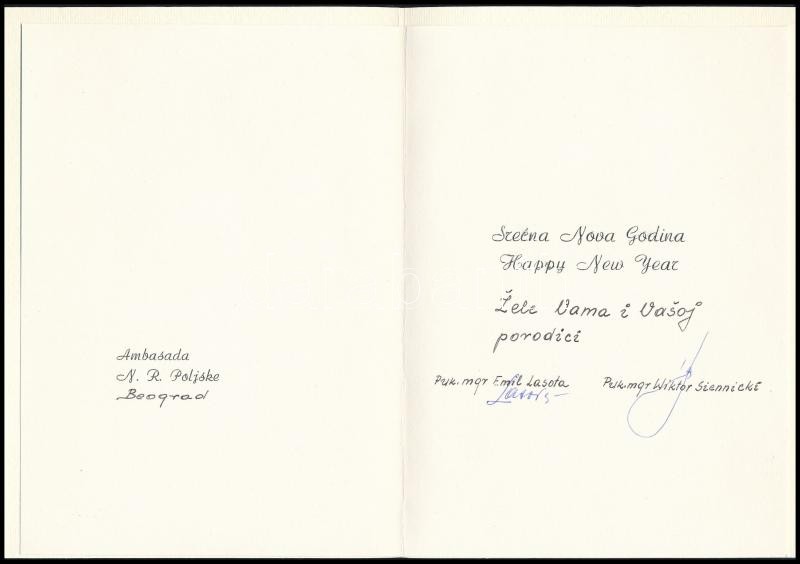 Ambasada
N. R. Poljske
Beograd
Srećna Nova Godina
Happy New Year
Žele Vama i Vašoj
porodici
Puk. mgr Emil Lasota
Lasota
Puk. mgr Wiktor Siennicki